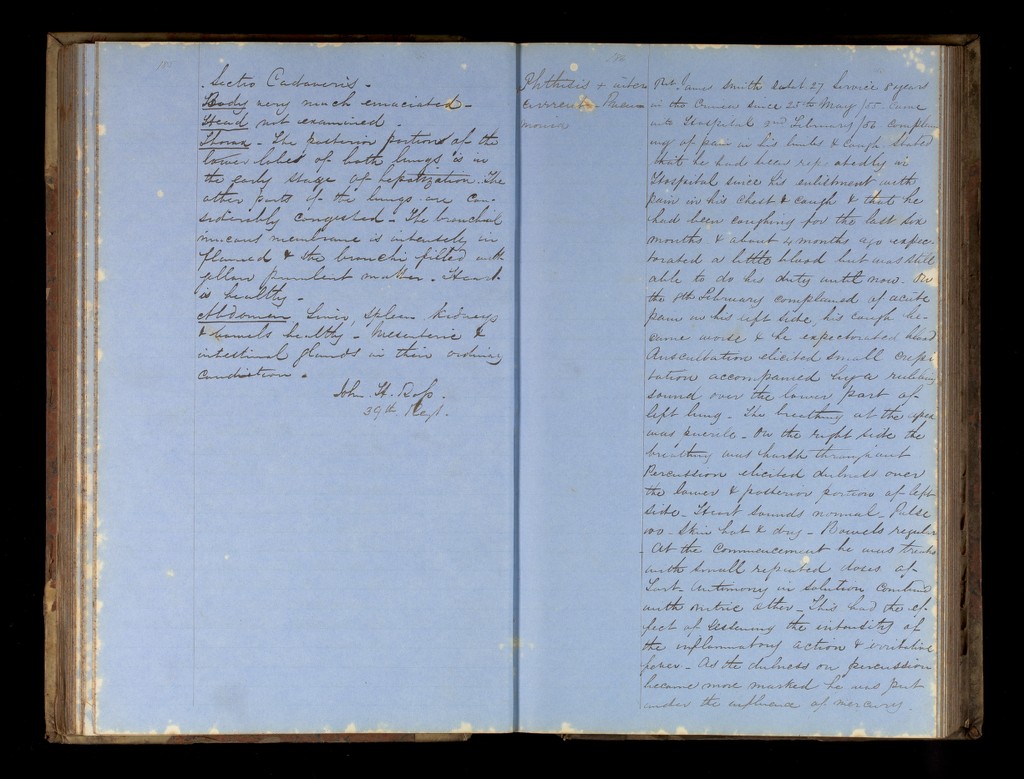 185
Sectio Cadaveris -
Body very much emaciated -
Head not examined -
Thorax - The posterior portions of the
lower lobes of both lungs is in
the early stage of hepatization. The
other parts of the lungs are con-
siderably congested - The bronchial
mucous membrane is intensely in
flamed & the bronchi filled with
yellow purulent matter. Heart
is healthy -
Abdomen Liver, Spleen Kidneys
& bowels healthy - Mesenteric &
intestinal glands in their ordinary
condiction -
John H. Ross.
39th Regt.
186
Phthisis + inter
current Pneu-
monia
Pvt. James Smith aetat 27 Service 8 years
in the Crimea since 25th May /55. Came
into Hospital 2nd February /56 complain
ing of pain in his limbs & cough. Stated
that he had been repeatedly in
Hospital since his enlistment with
pain in his chest & cough & that he
had been coughing for the last six
months & about 4 months ago expec-
torated a little blood but was still
able to do his duty until now. On
the 8th February complained of acute
pain in his left side, his cough be-
came worse & he expectorated blood
Auscultation elicited small crepi
tation accompanied by a rubbing
sound over the lower part of
left lung - The breathing at the apex
was puerile - On the right side the
breathing was harsh throughout
Percussion elicited dulness over
the lower & posterior portion of left
side - Heart sounds normal - Pulse
100 - Skin hot & dry - Bowels regular
At the commencement he was treated
with small repeated doses of
Tart. Antimony in solution combined
with nitric ether - This had the ef-
fect of lessening the intensity of
the inflammatory action & irritative
fever - As the dulness on percussion
became more marked he was put
under the influence of mercury.